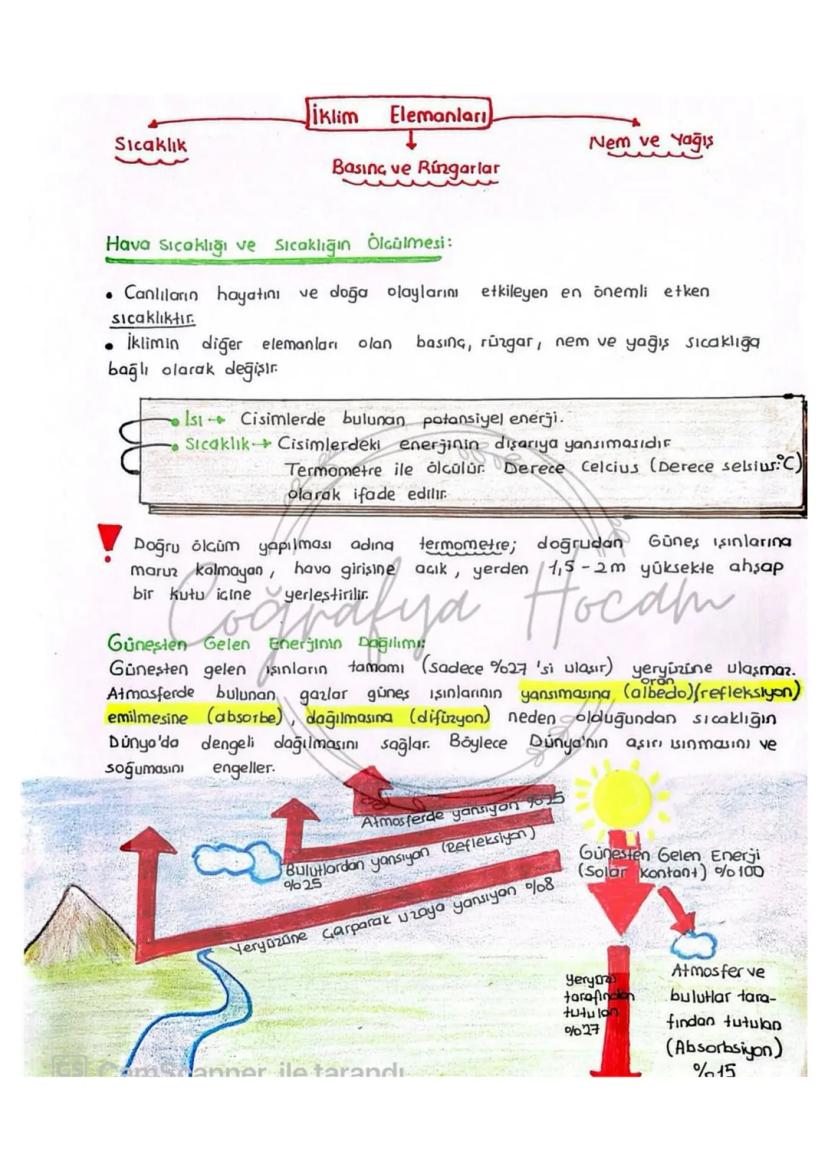 İklim Elemanları
Sıcaklık
Basınç ve Rüzgarlar
Nem ve Yağış
Hava Sıcaklığı ve Sıcaklığın Ölçülmesi:
• Canlıların hayatını ve doğa olaylarını etkileyen en önemli etken
sıcaklıktır.
• İklimin diğer elemanları olan basınç, rüzgar, nem ve yağış sıcaklığa
bağlı olarak değişir.
• Isı → Cisimlerde bulunan potansiyel enerji.
• Sıcaklık → Cisimlerdeki enerjinin dışarıya yansımasıdır
Termometre ile ölçülür. Derece Celcius (Derece selsius:°C)
olarak ifade edilir.
! Doğru ölçüm yapılması adına termometre; doğrudan Güneş ışınlarına
maruz kalmayan, hava girişine açık, yerden 1,5-2m yüksekte ahşap
bir kutu içine yerleştirilir.
Coğrafya Hocam
Güneşten Gelen Enerjinin Dağılımı:
Güneşten gelen ışınların tamamı (sadece %27'si ulaşır) yeryüzüne ulaşmaz.
oran
Atmosferde bulunan gazlar güneş ışınlarının yansımasına (albedo)(refleksiyon)
emilmesine (absorbe), dağılmasına (difüzyon) neden olduğundan sıcaklığın
Dünya'da dengeli dağılmasını sağlar. Böylece Dünya'nın aşırı ısınmasını ve
soğumasını engeller.
Atmosferde yansıyan %25
Bulutlardan yansıyan (Refleksiyon)
%25
Yeryüzüne çarparak uzaya yansıyan %8
Güneşten Gelen Enerji
(Solar Kontant) %100
yeryüzü
tarafından
tutulan
%27
Atmosfer ve
bulutlar tara-
fından tutulan
(Absorbsiyon)
%15
CS CamScanner ile tarandı